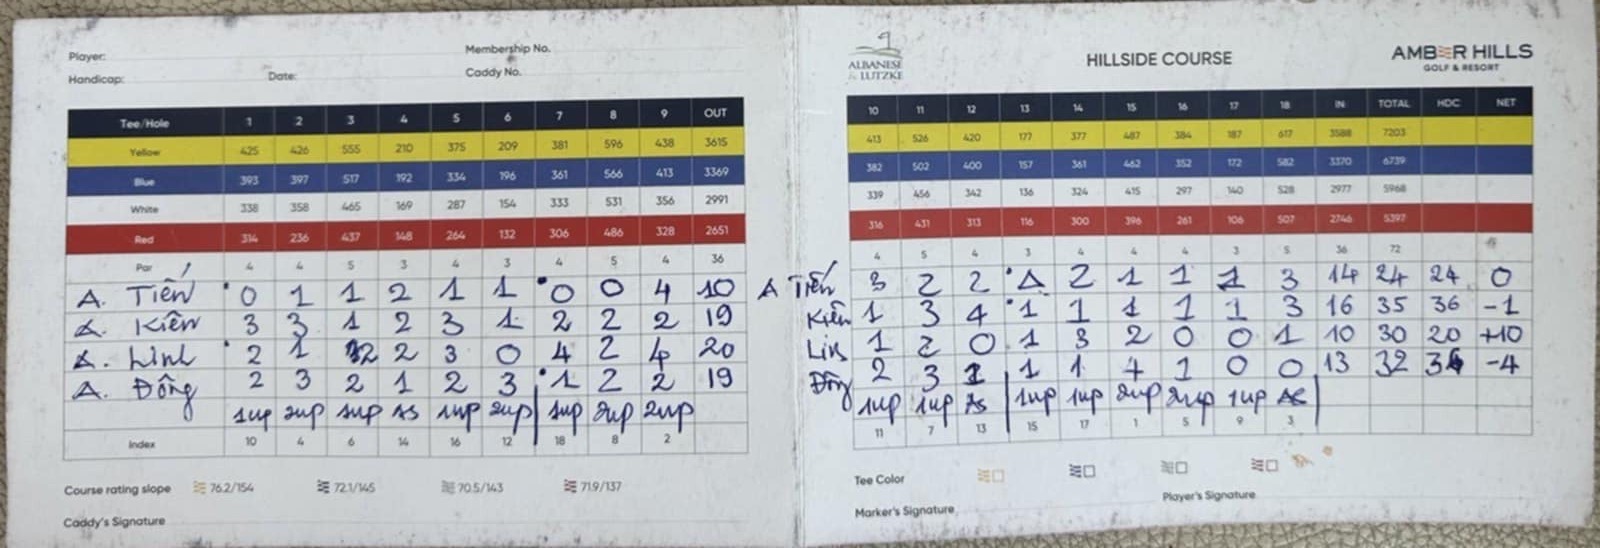 Player: Membership No.
Handicap: Date: Caddy No.
Tee/Hole 1 2 3 4 5 6 7 8 9 OUT
Yellow 425 426 555 210 375 209 381 596 438 3615
Blue 393 397 517 192 334 196 361 566 413 3369
White 338 358 465 169 287 154 333 531 356 2991
Red 314 236 437 148 264 132 306 486 328 2651
Par 4 4 5 3 4 3 4 5 4 36
A. Tiến 0 1 1 2 1 1 0 0 4 10
A. Kiên 3 3 1 2 3 1 2 2 2 19
A. Linh 2 1 2 2 3 0 4 2 4 20
A. Đông 2 3 2 1 2 3 1 2 2 19
1up 2up 1up AS 1up 2up 1up 2up 2up
Index 10 4 6 14 16 12 18 8 2
Course rating slope 76.2/154 72.1/145 70.5/143 71.9/137
Caddy's Signature
ALBANESE & LUTZKE
HILLSIDE COURSE
AMBER HILLS
GOLF & RESORT
10 11 12 13 14 15 16 17 18 IN TOTAL HDC NET
413 526 420 177 377 487 384 187 617 3588 7203
382 502 400 157 361 462 352 172 582 3370 6739
339 456 342 136 324 415 297 140 528 2977 5968
316 431 313 116 300 396 261 106 507 2746 5397
4 5 4 3 4 4 4 3 5 36 72
A Tiến 3 2 2 1 2 1 1 1 3 14 24 24 0
Kiên 1 3 4 1 1 1 1 1 3 16 35 36 -1
Lin 1 2 0 1 3 2 0 0 1 10 30 20 +10
Đông 2 3 1 1 1 4 1 0 0 13 32 36 -4
1up 1up AS 1up 1up 2up 2up 1up AS
11 7 13 15 17 1 5 9 3
Tee Color
Marker's Signature Player's Signature